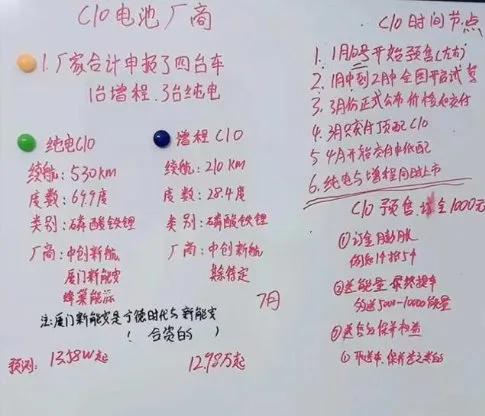 C10电池厂商
1.厂家合计申报了四台车
1台增程.3台纯电
纯电C10
续航:530km
度数:69.9度
类别:磷酸铁锂
厂商:中创新航
厦门新能安
蜂巢能源
增程C10
续航:210km
度数:28.4度
类别:磷酸铁锂
厂商:中创新航
注:厦门新能安是宁德时代与新能安
(合资的)
预测:13.58W起
12.98万起
7月
C10时间节点
1.1月10号开始预售
2.1月中到2月中全国开启试驾
3.3月份正式公布价格及交付
4.3月交付顶配C10
5.4月开始交付中低配
6.纯电与增程同时上市
C10预售 金1000元
①订金膨胀
②送能量
5000-10000能量
③
④